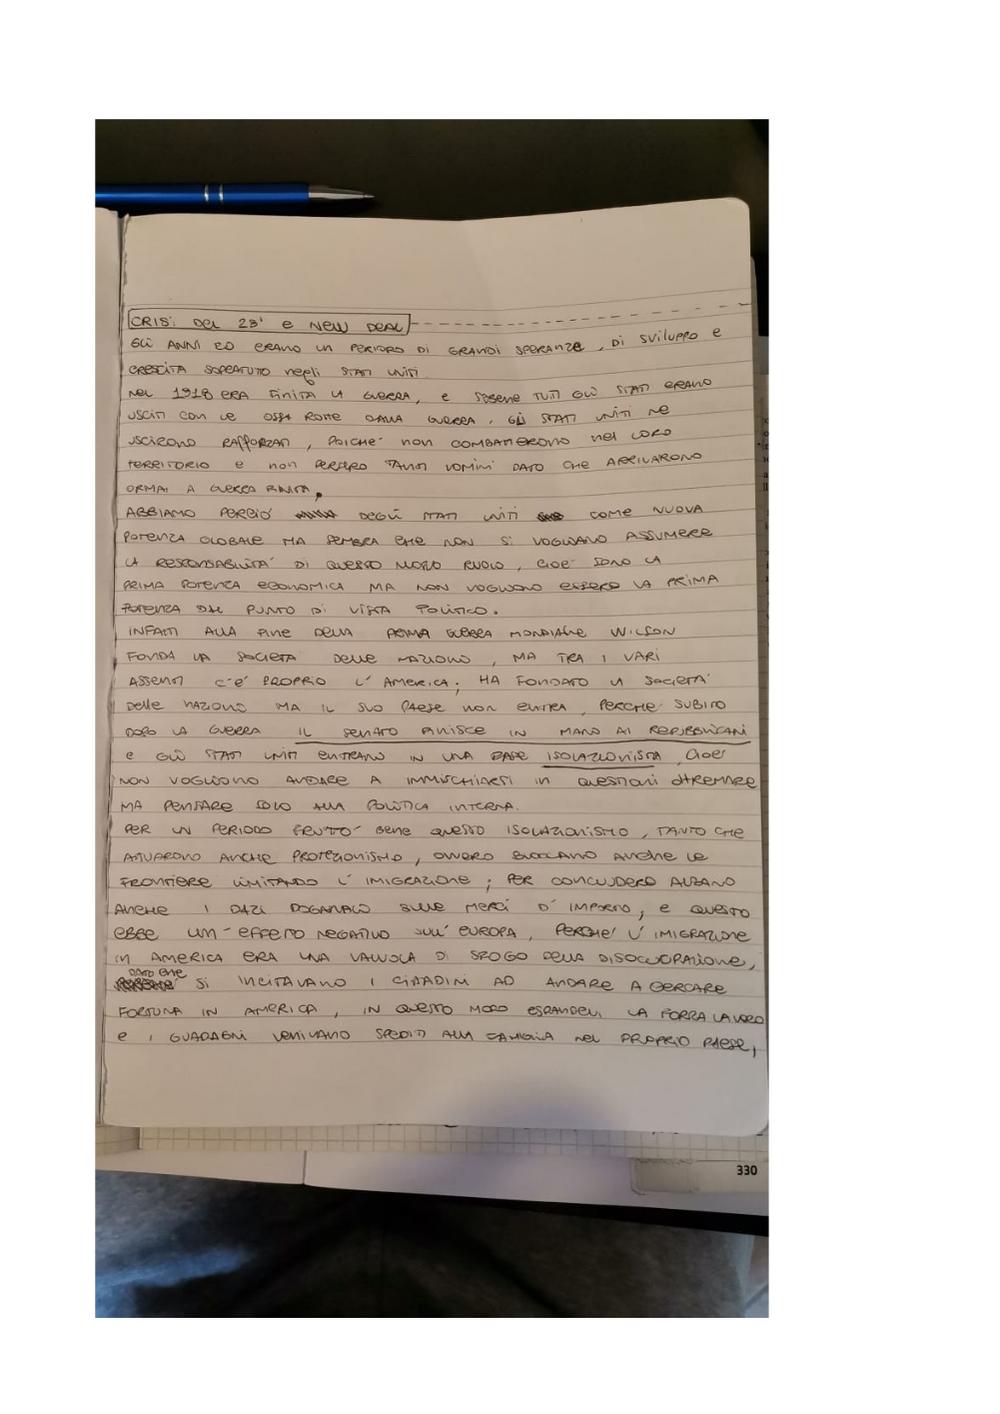 CRISI DEL 29' e NEW DEAL
GLI ANNI 20 ERANO UN PERIODO DI GRANDI SPERANZE, DI SVILUPPO E
CRESCITA SOPRATUTO negli STATI UNITI
NEL 1918 ERA FINITA LA GUERRA, E SEBENE TUTTI GLI STATI ERANO
USCITI CON LE OSSA ROTTE DALLA GUERRA, GLI STATI UNITI NE
USCIRONO RAFFORZATI, POICHE' NON COMBATTERONO NEL LORO
TERRITORIO E NON PERSERO TANTI UOMINI DATO CHE ARRIVARONO
ORMAI A GUERRA FINITA.
ABBIAMO PERCIO' DEGLI STATI UNITI COME NUOVA
POTENZA GLOBALE MA SEMBRA CHE NON SI VOGLIANO ASSUMERE
LA RESPONSABILITA' DI QUESTO NUOVO RUOLO, CIOE' SONO LA
PRIMA POTENZA ECONOMICA MA NON VOGLIONO ESSERE LA PRIMA
POTENZA DAL PUNTO DI VISTA POLITICO.
INFATTI ALLA FINE DELLA PRIMA GUERRA MONDIALE WILSON
FONDA LA SOCIETA' DELLE NAZIONI, MA TRA I VARI
ASSENTI C'E' PROPRIO L'AMERICA; HA FONDATO LA SOCIETA'
DELLE NAZIONI MA IL SUO PAESE NON ENTRA, PERCHE' SUBITO
DOPO LA GUERRA IL SENATO FINISCE IN MANO AI REPUBBLICANI
E GLI STATI UNITI ENTRANO IN UNA FASE ISOLAZIONISTA, CIOE'
NON VOGLIONO ANDARE A IMMISCHIARSI IN QUESTIONI OLTREMARE
MA PENSARE SOLO ALLA POLITICA INTERNA.
PER UN PERIODO FRUTTO' BENE QUESTO ISOLAZIONISMO, TANTO CHE
ATTUARONO ANCHE PROTEZIONISMO, OVVERO BLOCCANO ANCHE LE
FRONTIERE LIMITANDO L'IMIGRAZIONE; PER CONCLUDERE ALZANO
ANCHE I DAZI DOGANALI SULLE MERCI D'IMPORTO, E QUESTO
EBBE UN EFFETTO NEGATIVO SULL'EUROPA, PERCHE' L'IMIGRAZIONE
IN AMERICA ERA UNA VALVOLA DI SFOGO DELLA DISOCCUPAZIONE,
DATO CHE SI INCITAVANO I CITTADINI AD ANDARE A CERCARE
FORTUNA IN AMERICA, IN QUESTO MODO ESPANDEVI LA FORZA LAVORO
E I GUADAGNI VENIVANO SPEDITI ALLA FAMIGLIA NEL PROPRIO PAESE,
330